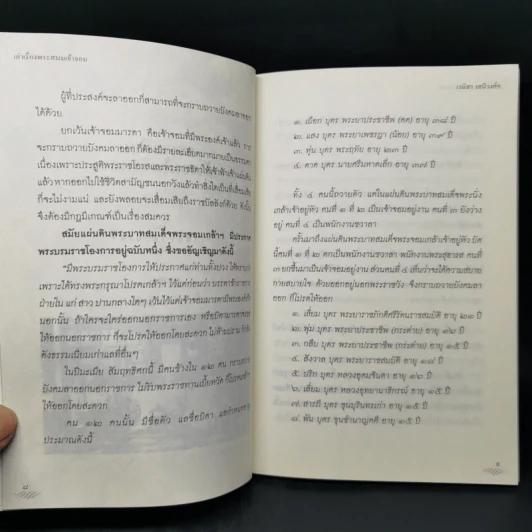 เล่าเรื่องพระสนมเจ้าจอม
ผู้ที่ประสงค์จะลาออกก็สามารถที่จะกราบถวายบังคมลาออก
ได้ด้วย
ยกเว้นเจ้าจอมมารดา คือเจ้าจอมที่มีพระองค์เจ้าแล้ว
จะกราบถวายบังคมลาออก ก็ต้องมีรายละเอียดมากมาย
เนื่องเพราะประสูติพระราชโอรสและพระราชธิดาให้
แล้วหากออกไปใช้ชีวิตสามัญชนนอกวังแล้วทำสิ่งใดเป็นที่เสื่อมเสีย
ก็จะไม่งามแน่ และยังพลอยจะเสื่อมเสียถึงราชบัลลังก์
จึงต้องมีกฎมีเกณฑ์เป็นเรื่องสมควร
สมัยแผ่นดินพระบาทสมเด็จพระจอมเกล้าฯ มีประกาศ
พระบรมราชโองการอยู่ฉบับหนึ่ง ซึ่งขออัญเชิญมาดังนี้
"มีพระบรมราชโองการให้ประกาศแก่ท่านทั้งปวง
เพราะได้ทรงพระกรุณาโปรดเกล้าฯ ไว้แต่ก่อนว่า
ฝ่ายใน แก่ สาว ปานกลางใดๆ เว้นไว้แต่เจ้าจอมมารดา
นอกนั้น ถ้าใครจะใคร่ออกนอกราชการเอง หรือบิดามารดา
ให้ออกนอกราชการ ก็จะโปรดให้ออกโดยสะดวก ไม่ห้ามปราม
ดังธรรมเนียมเก่าแลที่อื่นๆ
ในปีมะเมีย สัมฤทธิศกนี้ มีคนข้างใน ๑๒ คน
บังคมลาออกนอกราชการ ไม่รับพระราชทานเบี้ยหวัด
ให้ออกโดยสะดวก
คน ๑๒ คนนั้น มีชื่อตัว แลชื่อบิดา
ประมาณดังนี้
๘
เวณิสา เสนีวงศ์ฯ
๑. เผือก บุตร พระยาประชาชีพ อายุ ๓๘ ปี
๒. แสง บุตร พระยาเพชรฎา (น้อย) อายุ ๓๙ ปี
๓. หุ่น บุตร พระฤทัย อายุ ๒๓ ปี
๔. ตาด บุตร นายศรีมหาดเล็ก อายุ ๓๗ ปี
ทั้ง ๔ คนนี้ถวายตัว แต่ในแผ่นดินพระบาทสมเด็จพระนั่ง
เกล้าเจ้าอยู่หัว คนที่ ๑ ที่ ๒ เป็นเจ้าจอมอยู่งาน คนที่ ๓ ยังว่าง
อยู่ คนที่ ๔ เป็นพนักงานขวาล่า
ครั้นมาถึงแผ่นดินพระบาทสมเด็จพระจอมเกล้าเจ้าอยู่หัว
นี้คนที่ ๑ ที่ ๒ ตกเป็นพนักงานขวาล่า พนักงานพระสุธารส คนที่
๓ ยกขึ้นมาเป็นเจ้าจอมอยู่งาน ส่วนคนที่ ๔ เห็นว่าจะได้ความสบาย
กายสบายใจ ด้วยออกอยู่นอกพระราชวัง จึงกราบถวายบังคมลา
ออก ก็โปรดให้ออก
๑. เลี่ยม บุตร พระยาราชภักดีศรีรัตนราชสมบัติ อายุ ๒๑ ปี
๒. พุ่ม บุตร พระยาประชาชีพ (กระต่าย) อายุ ๒๑ ปี
๓. กลีบ บุตร พระยาประชาชีพ (กระต่าย) อายุ ๑๕ ปี
๔. สังวาล บุตร พระยาราชสมบัติ อายุ ๑๘ ปี
๕. ปริก บุตร หลวงอุดมจินดา อายุ ๑๖ ปี
๖. เลี่ยม บุตร หลวงอุทยานาธิกรณ์ อายุ ๑๕ ปี
๗. สารภี บุตร ขุนบุรินทรเก่า อายุ ๑๕ ปี
๘. พัน บุตร ขุนชำนาญคดี อายุ ๑๕ ปี
๙